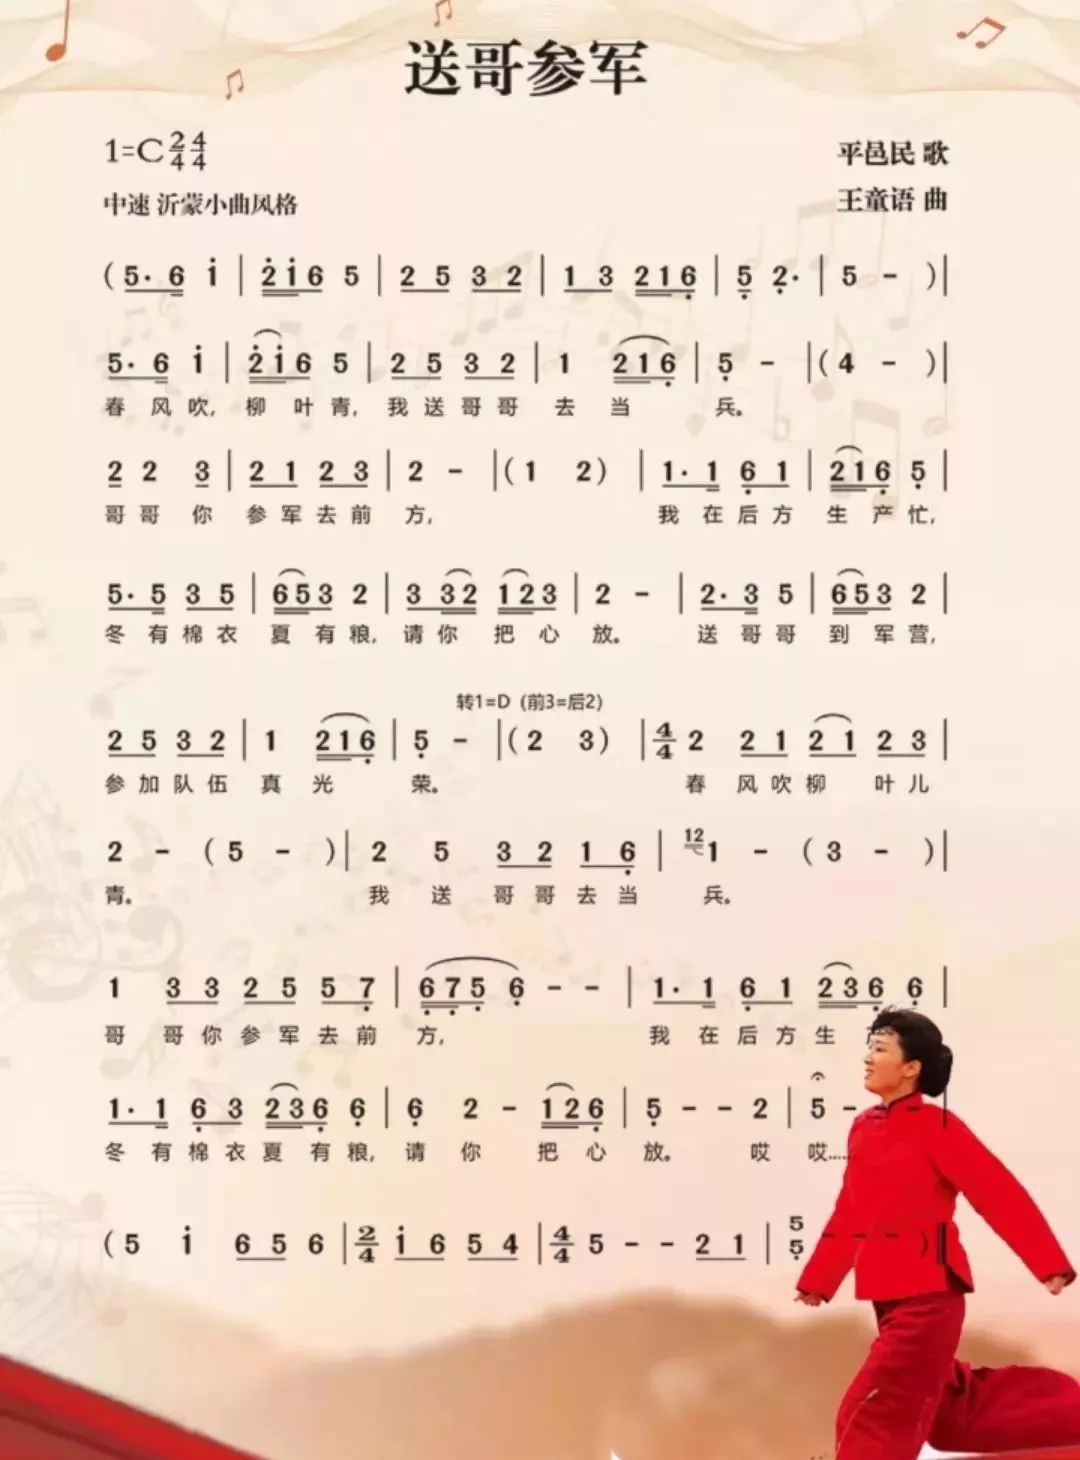 送哥参军
1=C 2/4 4/4
平邑民 歌
中速 沂蒙小曲风格
王童语 曲
( 5· 6 i | 2̇ i 6 5 | 2 5 3 2 | 1 3 2 1 6̣ | 5̣ 2̣· | 5 - ) |
5· 6 i | 2̇ i 6 5 | 2 5 3 2 | 1 2 1 6̣ | 5̣ - | ( 4 - ) |
春 风 吹, 柳 叶 青, 我 送 哥 哥 去 当 兵。
2 2 3 | 2 1 2 3 | 2 - | ( 1 2 ) | 1· 1 6̣ 1 | 2 1 6̣ 5̣ |
哥 哥 你 参 军 去 前 方, 我 在 后 方 生 产 忙,
5· 5 3 5 | 6 5 3 2 | 3 3 2 1 2 3 | 2 - | 2· 3 5 | 6 5 3 2 |
冬 有 棉 衣 夏 有 粮, 请 你 把 心 放。 送 哥 哥 到 军 营,
转1=D (前3=后2)
2 5 3 2 | 1 2 1 6̣ | 5̣ - | ( 2 3 ) | 4/4 2 2 1 2 1 2 3 |
参 加 队 伍 真 光 荣。 春 风 吹 柳 叶 儿
2 - ( 5 - ) | 2 5 3 2 1 6̣ | 12 1 - ( 3 - ) |
青。 我 送 哥 哥 去 当 兵。
1 3 3 2 5 5 7̣ | 6̣ 7̣ 5̣ 6̣ - - | 1· 1 6̣ 1 2 3 6̣ 6̣ |
哥 哥 你 参 军 去 前 方, 我 在 后 方 生
1· 1 6̣ 3 2 3 6̣ 6̣ | 6̣ 2 - 1 2 6̣ | 5̣ - - 2 | 5̣ - - - |
冬 有 棉 衣 夏 有 粮, 请 你 把 心 放。 哎 哎......
( 5 i 6 5 6 | 2/4 i 6 5 4 | 4/4 5 - - 2 1 | 5 5̣ - - - ) ‖